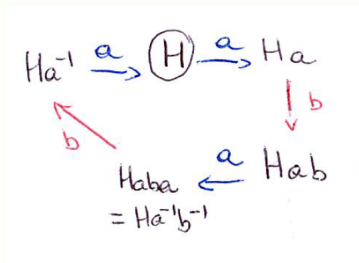 Ha⁻¹ a H a Ha
b b
Haba a Hab
= Ha⁻¹b⁻¹